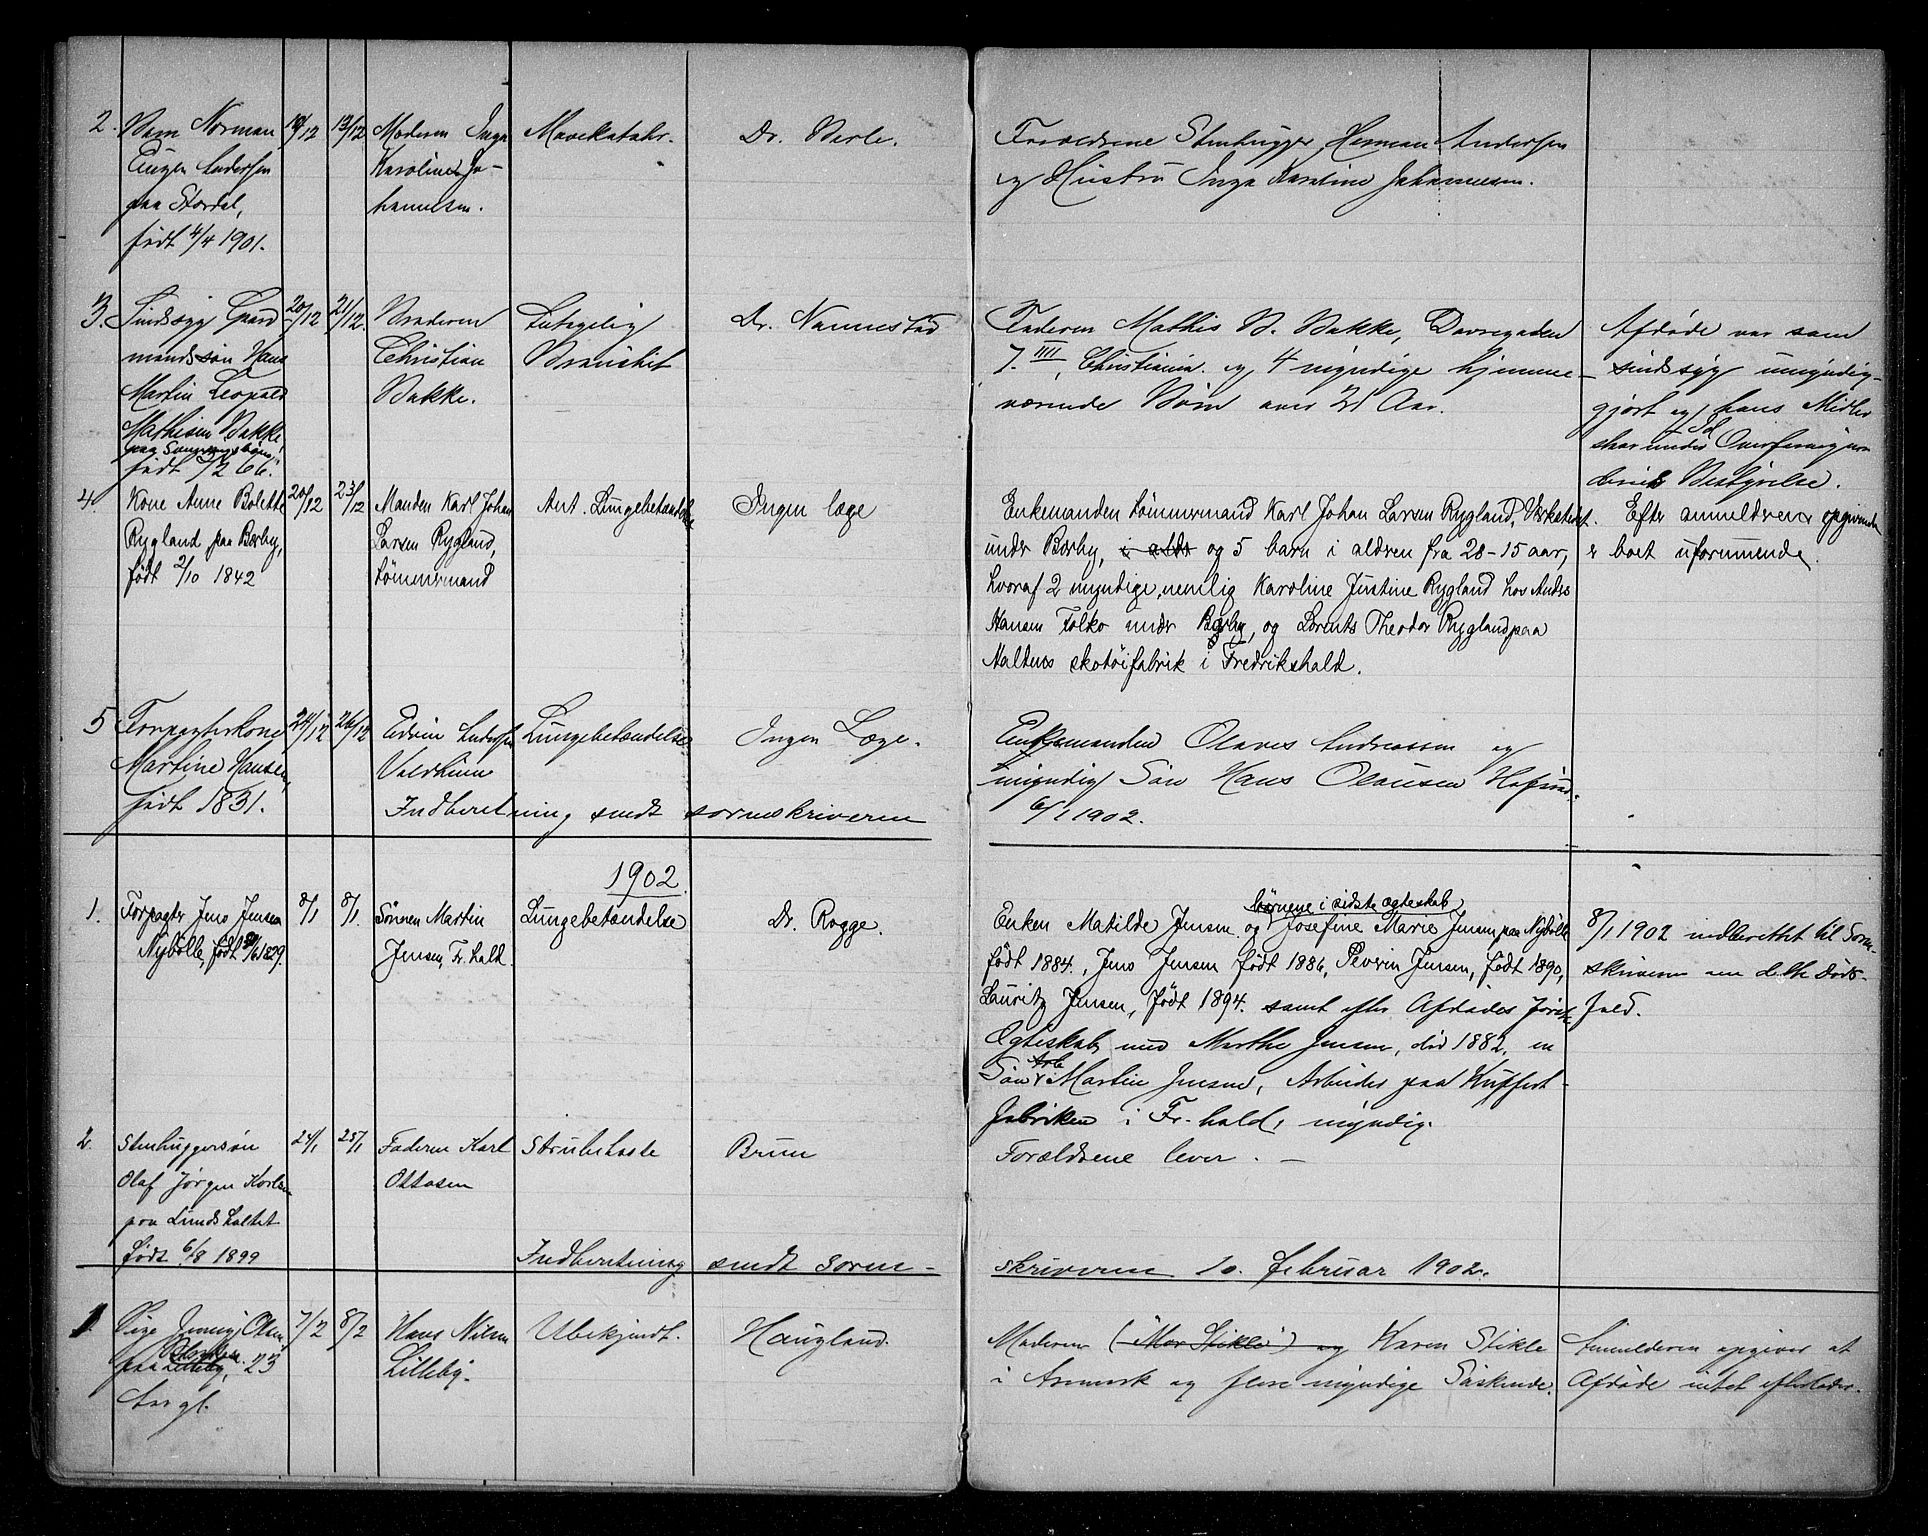 2. Barn Norman 19/12 19/12 Moderen Inga Mavekatahr. Dr. Barle.
Eugen Andersen Karoline Jo-
paa Stordal, hannesen.
født 4/4 1901.
Forældrene Stenhugger Herman Andersen
og Hustru Inga Karoline Johannesen.
3. Sindssyg Gaard 20/12 21/12. Broderen Dr. Nannestad
mandssøn Hans Christian
Martin Leopold Bakke.
Mathisen Bakke
født 7/2 66.
Faderen Mathis B. Bakke, Dovregaden
7. IIII, Christiania og 4 myndige hjemme-
værende Børn over 21 Aar.
Afdøde var som
sindssyg umyndig-
gjort og hans Midler
Bestyrelse.
4. Kone Anne Bolette 20/12 23/12 Manden Karl Johan Ant. Lungebetændelse Ingen læge
Rygland paa Børby, Larsen Rygland,
født 2/10 1842 tømmermand
Enkemanden tømmermand Karl Johan Larsen Rygland,
under Børby, i aldr og 5 barn i aldren fra 28-15 aar,
hvoraf 2 myndige, nemlig Karoline Justine Rygland hos Anders
Hansen Folko under Børby, og Lorents Theodor Rygland paa
Maltens skotøifabrik i Fredrikshald.
Efter anmelderens opgivende
er boet uformuende.
5 Forpagterkone 24/12 26/12 Edvin Andersen Lungebetændelse Ingen Læge.
Martine Hansen,
født 1831.
Enkemanden Olaves Andreassen og
myndig Søn Hans Olausen
Indberetning sendt sorenskriveren
6/1 1902.
1902
1. Forpagter Jens Jensen 8/1 8/1. Sønnen Martin Lungebetændelse Dr. Rogge.
Nybølle, født 1829. Jensen, Fr.hald.
børnene i sidste ægteskab
Enken Matilde Jensen og Josefine Marie Jensen paa Nybølle
født 1884, Jens Jensen født 1886, Peverin Jensen, født 1890,
Lauritz Jensen, født 1894. samt efter Afdødes første
Ægteskab med Marthe Jensen, død 1882, en
Søn Martin Jensen, Arbeider paa Kuffert-
fabriken i Fr.hald, myndig.
8/1 1902 indberettet til Soren-
skriveren om dette Døds-
fald.
2. Stenhuggersøn 24/1 25/1 Faderen Karl Strubehoste Bruun
Olaf Jørgen Karlsen Ottosen
paa Lundsholtet
født 6/8 1899
Forældrene lever. —
Indberetning sendt soren-
skriveren 10. februar 1902.
1. Pige Jenny Olsen 7/2 8/2 Hans Nilsen Ubekjendt. Haugland.
paa Lilleby, 23 Lilleby.
Aar gl.
Moderen ("Mor Stikle") og Karen Stikle
i Aremark og flere myndige Søskende.
Anmelderen opgiver at
Afdøde intet efterlader.